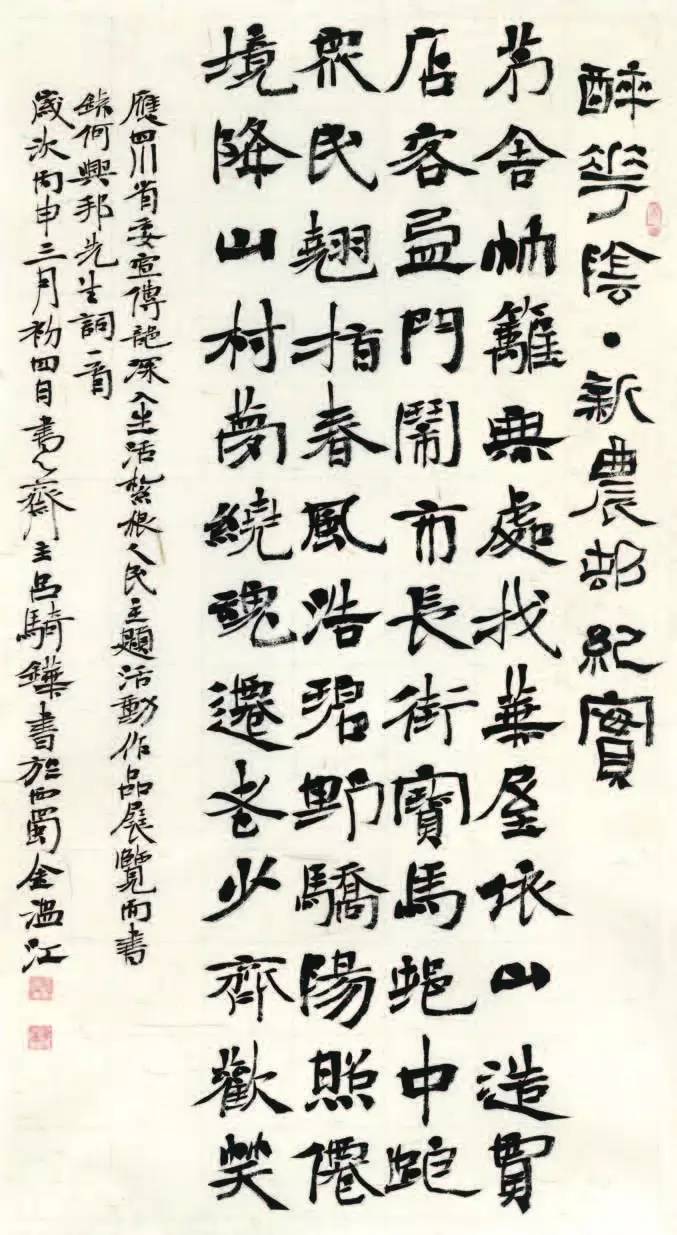 醉花陰·新農邨紀實
茅舍竹籬無處找華屋依山造賈
店客盈門鬧市長街寶馬邨中跑
眾民翹指春風浩碧野驕陽照僊
境降山村夢繞魂遷老少齊歡笑
應四川省委宣傳部深入生活紮根人民主題活動作品展覽而書
錄何興邦先生詞一首
歲次丙申三月初四日書齋主呂騎鏵書於西蜀金溫江